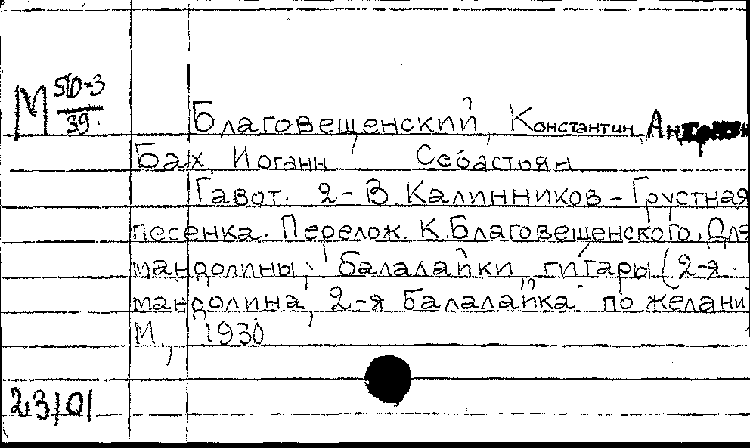 М 510-3
39.
Благовещенский, Константин
Бах Иоганн Себастьян
Гавот. 2 - В. Калинников - Грустная
песенка. Перелож. К. Благовещенского. Для
мандолины, балалайки, гитары (2-я
мандолина, 2-я балалайка по желани
М., 1930
23/01